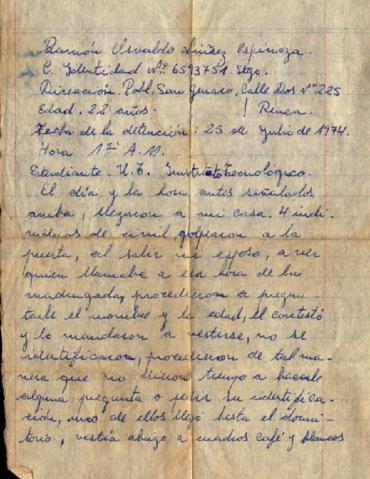 Ramón Osvaldo Núñez Espinoza.
C. Identidad Nº: 6593751. Stgo.
Dirección. Pobl. San Genaro, Calle Dos Nº 225
Edad. 22 años. / Renca.
Fecha de la detención: 25 de Julio de 1974.
Hora 1 A.M.
Estudiante. U. T. Instituto Tecnológico.
El día y la hora antes señalados
arriba, llegaron a mi casa. 4 indi-
viduos de civil golpearon a la
puerta, al salir mi esposo, a ver
quien llamaba a esa hora de la
madrugada, procedieron a pregun-
tarle el nombre y la edad, él contestó
y lo mandaron a vestirse, no se
identificaron, procedieron de tal ma-
nera que no dieron tiempo a hacerle
alguna pregunta o pedir su identifica-
ción, uno de ellos llegó hasta el dormi-
torio, vestía abrigo a cuadros café y blancos